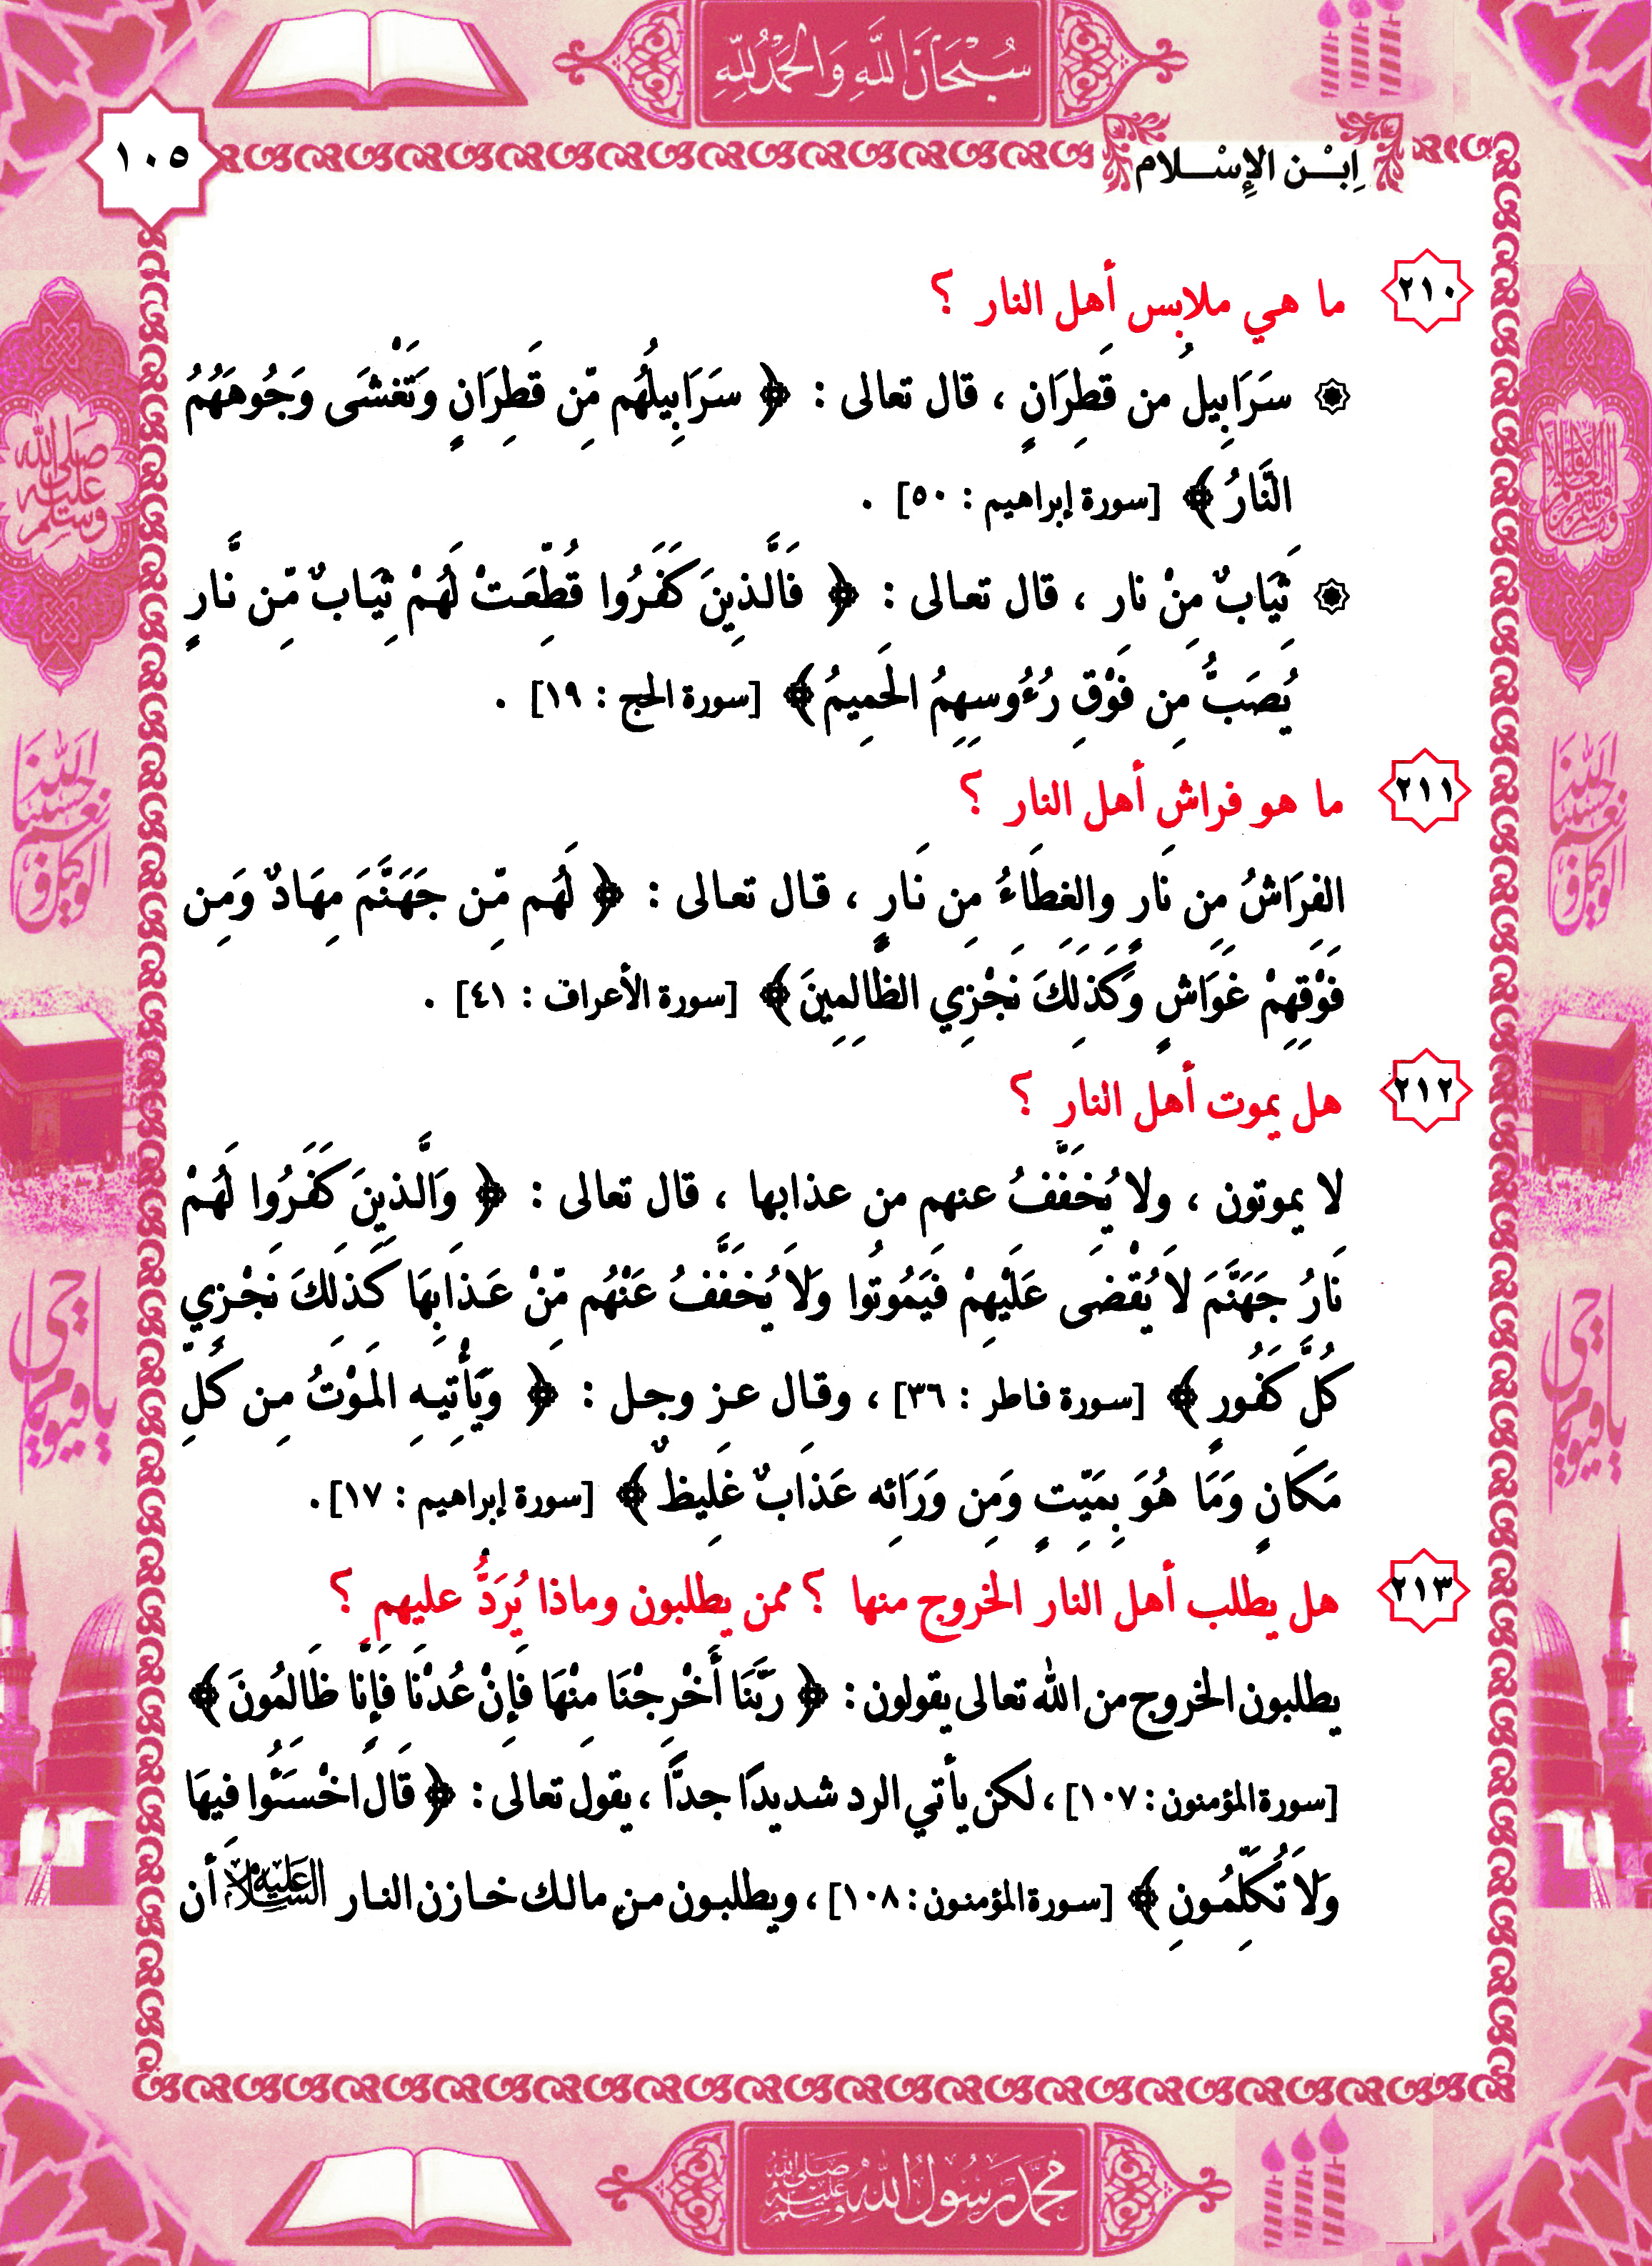 سُبْحَانَ اللَّهِ وَالحَمْدُ لِلَّهِ
١٠٥
اِبْـن الإِسْـلام
٢١٠
ما هي ملابس أهل النار ؟
سَرَابِيلُ من قَطِرَانٍ ، قال تعالى : ﴿ سَرَابِيلُهُم مِّن قَطِرَانٍ وَتَغْشَى وَجُوهَهُمُ
النَّارُ ﴾ [سورة إبراهيم : ٥٠] .
ثِيَابٌ مِنْ نار ، قال تعالى : ﴿ فَالَّذِينَ كَفَرُوا قُطِّعَتْ لَهُمْ ثِيَابٌ مِّن نَّارٍ
يُصَبُّ مِن فَوْقِ رُءُوسِهِمُ الحَمِيمُ ﴾ [سورة الحج : ١٩] .
٢١١
ما هو فراش أهل النار ؟
الفِرَاشُ مِن نَارٍ والغِطَاءُ مِن نَارٍ ، قال تعالى : ﴿ لَهُم مِّن جَهَنَّمَ مِهَادٌ وَمِن
فَوْقِهِمْ غَوَاشٍ وَكَذَلِكَ نَجْزِي الظَالِمِينَ ﴾ [سورة الأعراف : ٤١] .
٢١٢
هل يموت أهل النار ؟
لا يموتون ، ولا يُخَفَّفُ عنهم من عذابها ، قال تعالى : ﴿ وَالَّذِينَ كَفَرُوا لَهُمْ
نَارُ جَهَنَّمَ لاَ يُقْضَى عَلَيْهِمْ فَيَمُوتُوا وَلاَ يُخَفَّفُ عَنْهُم مِّنْ عَذَابِهَا كَذَلِكَ نَجْزِي
كُلَّ كَفُورٍ ﴾ [سورة فاطر : ٣٦] ، وقال عز وجل : ﴿ وَيَأْتِيهِ المَوْتُ مِن كُلِّ
مَكَانٍ وَمَا هُوَ بِمَيِّتٍ وَمِن وَرَائِه عَذَابٌ غَلِيظٌ ﴾ [سورة إبراهيم : ١٧] .
٢١٣
هل يطلب أهل النار الخروج منها ؟ ممن يطلبون وماذا يُرَدُّ عليهم ؟
يطلبون الخروج من الله تعالى يقولون : ﴿ رَبَّنَا أَخْرِجْنَا مِنْهَا فَإِنْ عُدْنَا فَإِنَّا ظَالِمُونَ ﴾
[سورة المؤمنون : ١٠٧] ، لكن يأتي الرد شديدًا جدًّا ، يقول تعالى : ﴿ قَالَ اخْسَئُوا فِيهَا
وَلاَ تُكَلِّمُونِ ﴾ [سورة المؤمنون : ١٠٨] ، ويطلبون من مالك خازن النار عليه السلام أن
محمد رسول الله صلى الله عليه وسلم
صلى الله عليه وسلم
حسبنا الله ونعم الوكيل
يا حي يا قيوم
حسبنا الله ونعم الوكيل
يا حي يا قيوم